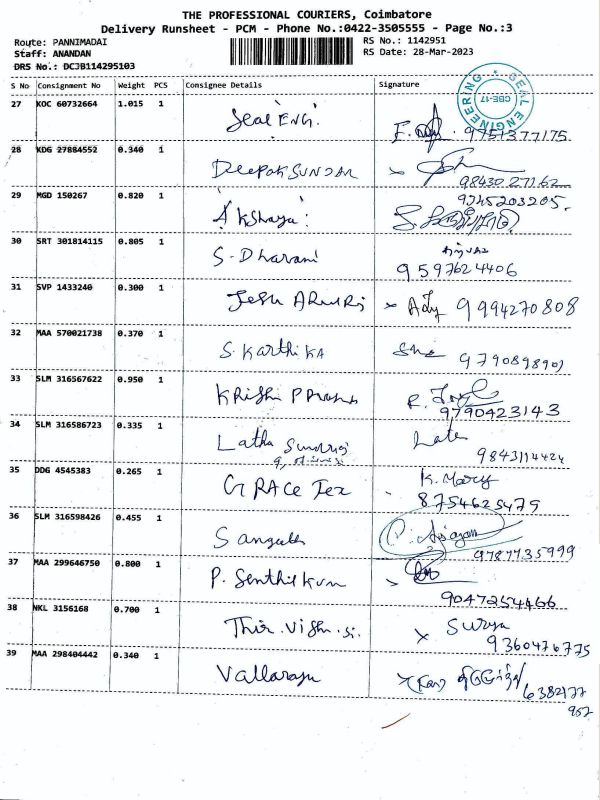 THE PROFESSIONAL COURIERS, Coimbatore
Delivery Runsheet - PCM - Phone No.:0422-3505555 - Page No.:3
Route: PANNIMADAI RS No.: 1142951
Staff: ANANDAN RS Date: 28-Mar-2023
DRS No.: DCJB114295103
S No Consignment No Weight PCS Consignee Details Signature
SEAL ENGINEERING CBE-17
27 KOC 60732664 1.015 1 Seal ENGI. 9751377175
28 KDG 27884552 0.340 1 Deepak SUNDAR 98430 27162
29 MGD 150267 0.820 1 Akshaya 9745203205.
30 SRT 301814115 0.805 1 S-Dharani
9597624406
31 SVP 1433240 0.300 1 9994270808
32 MAA 570021738 0.370 1 S. Karthika
33 SLM 316567622 0.950 1 9790423143
34 SLM 316586723 0.335 1 Latha
35 DDG 4545383 0.265 1 GRACE Tex K. Mary
8754625479
36 SLM 316598426 0.455 1 9787735999
37 MAA 299646750 0.800 1 P. Senthil
9047254466
38 NKL 3156168 0.700 1 Surya
9360476775
39 MAA 298404442 0.340 1 6382177
957